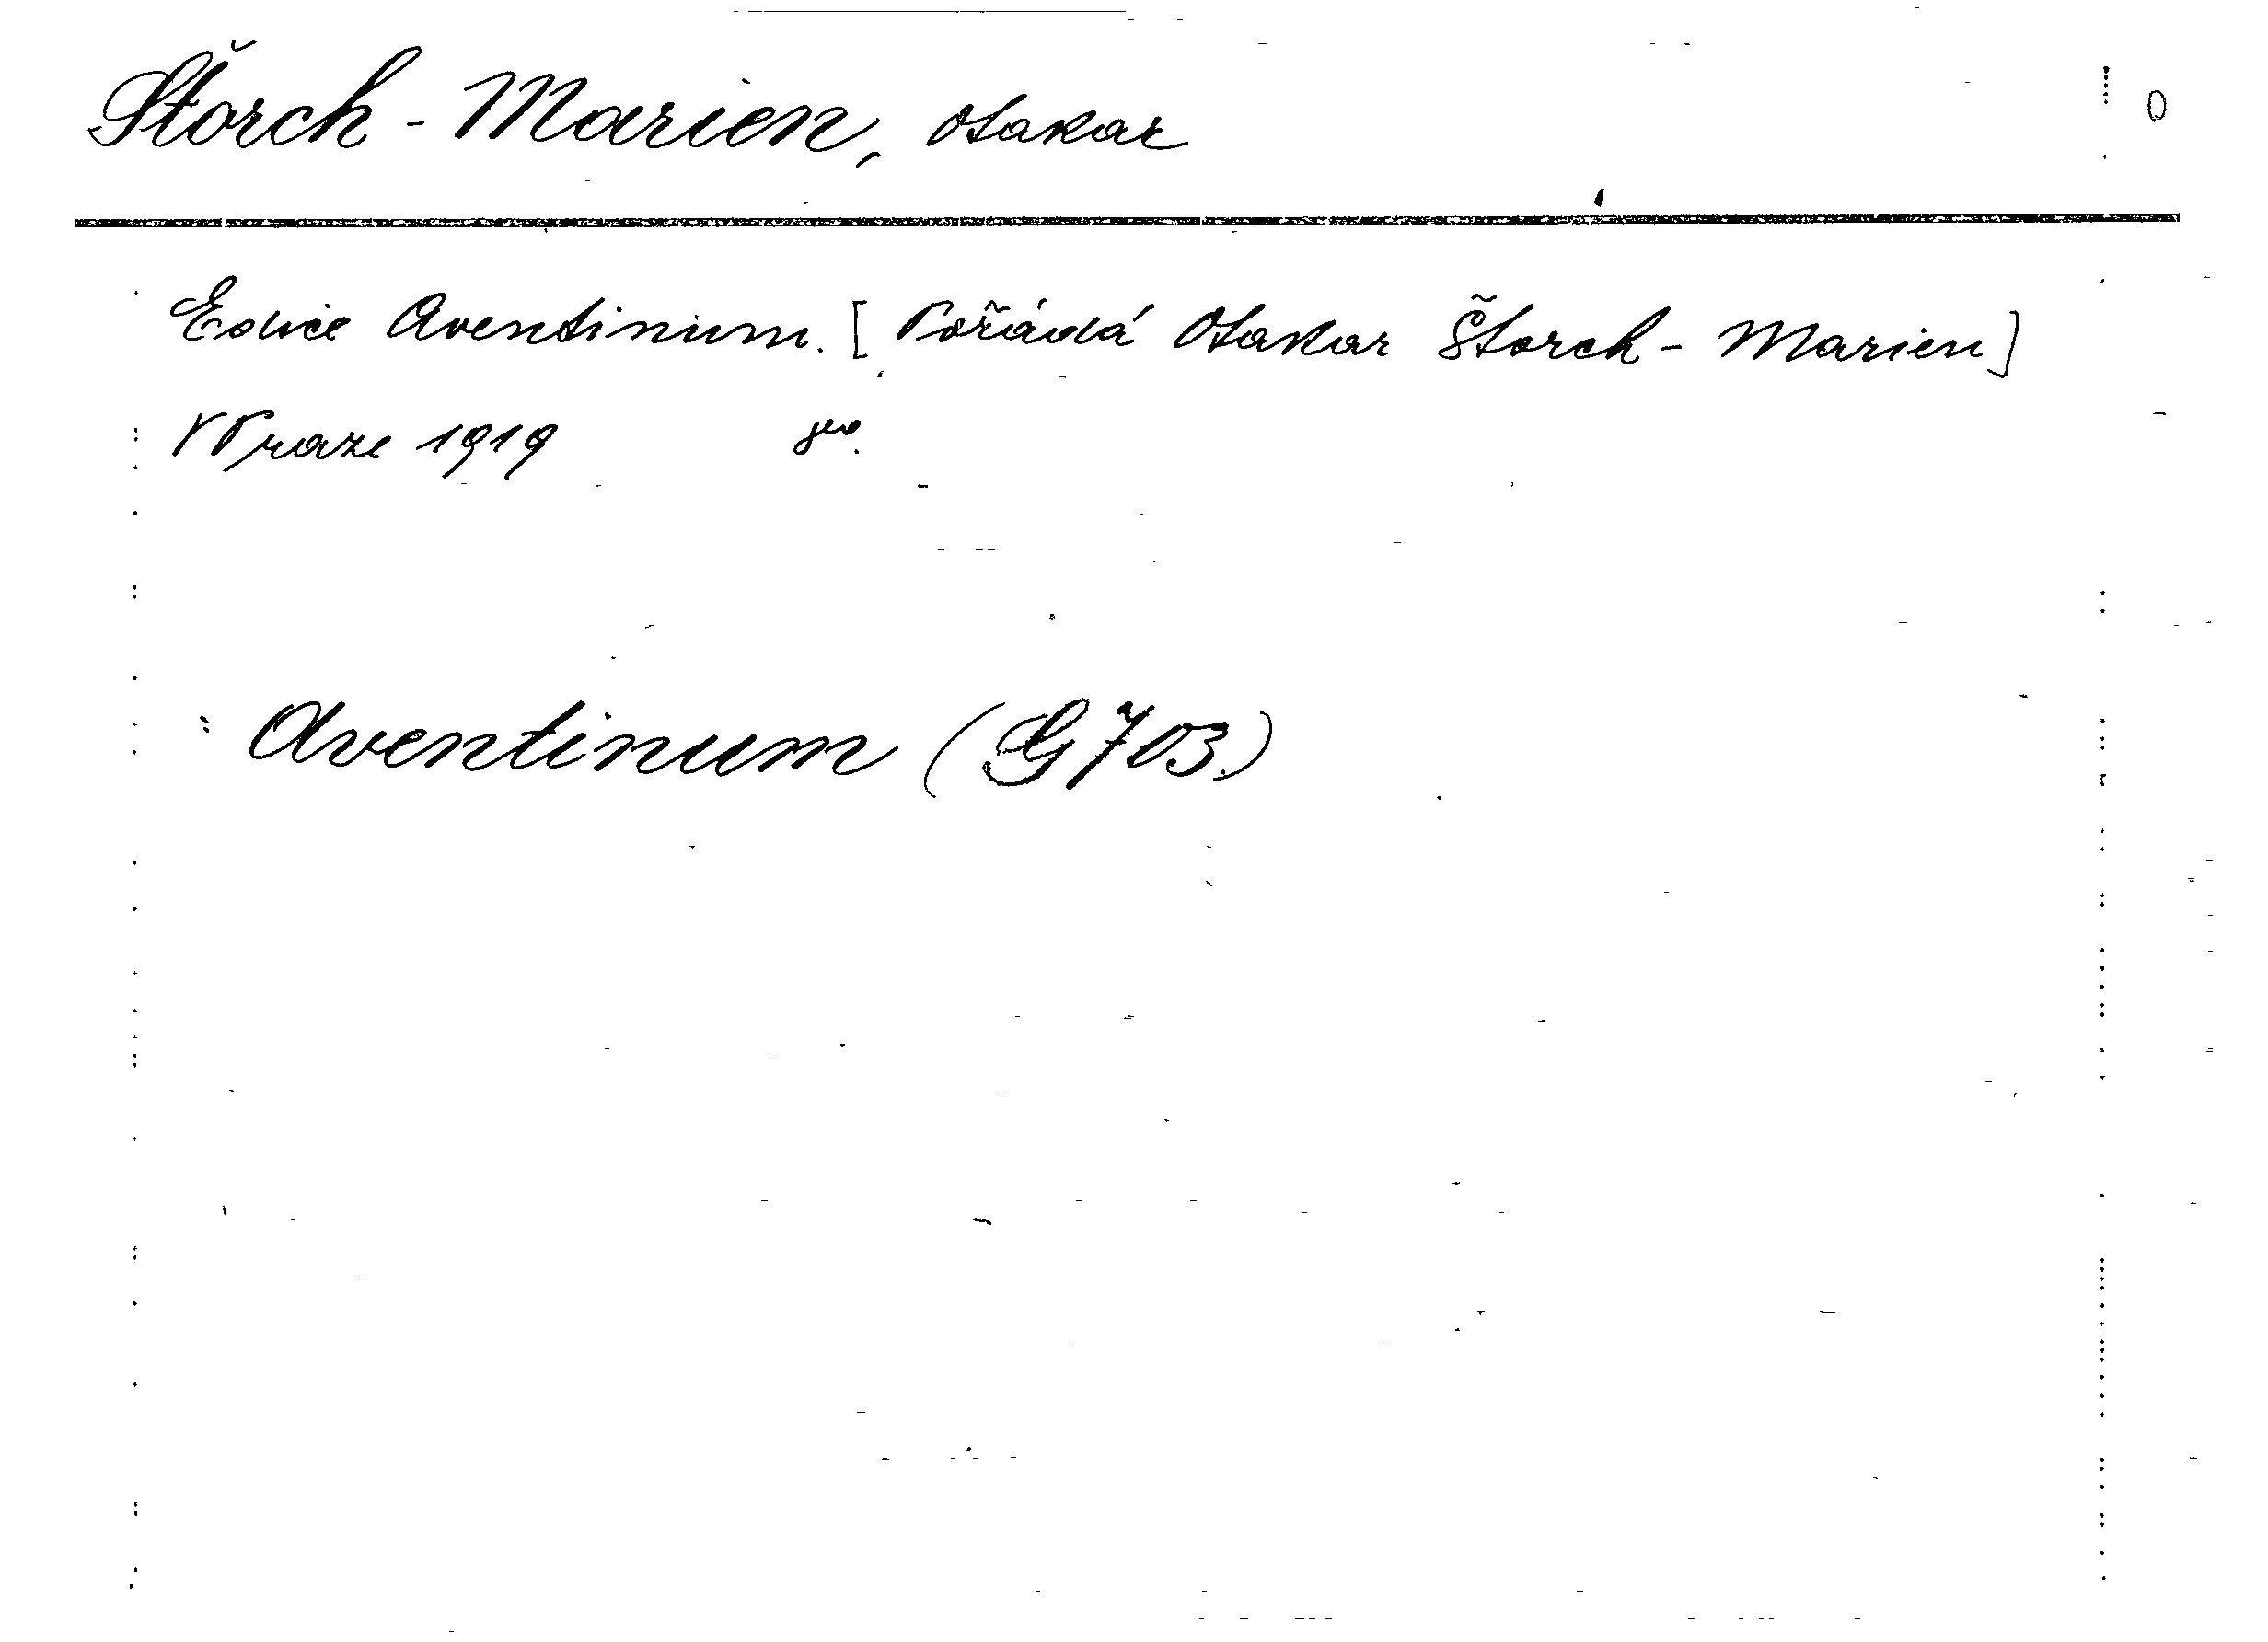 Štorch-Marien, Otakar
0
Edice Aventinum. [Pořádá Otakar Štorch-Marien]
V Praze 1919 8⁰.
: Aventinum (G 703)